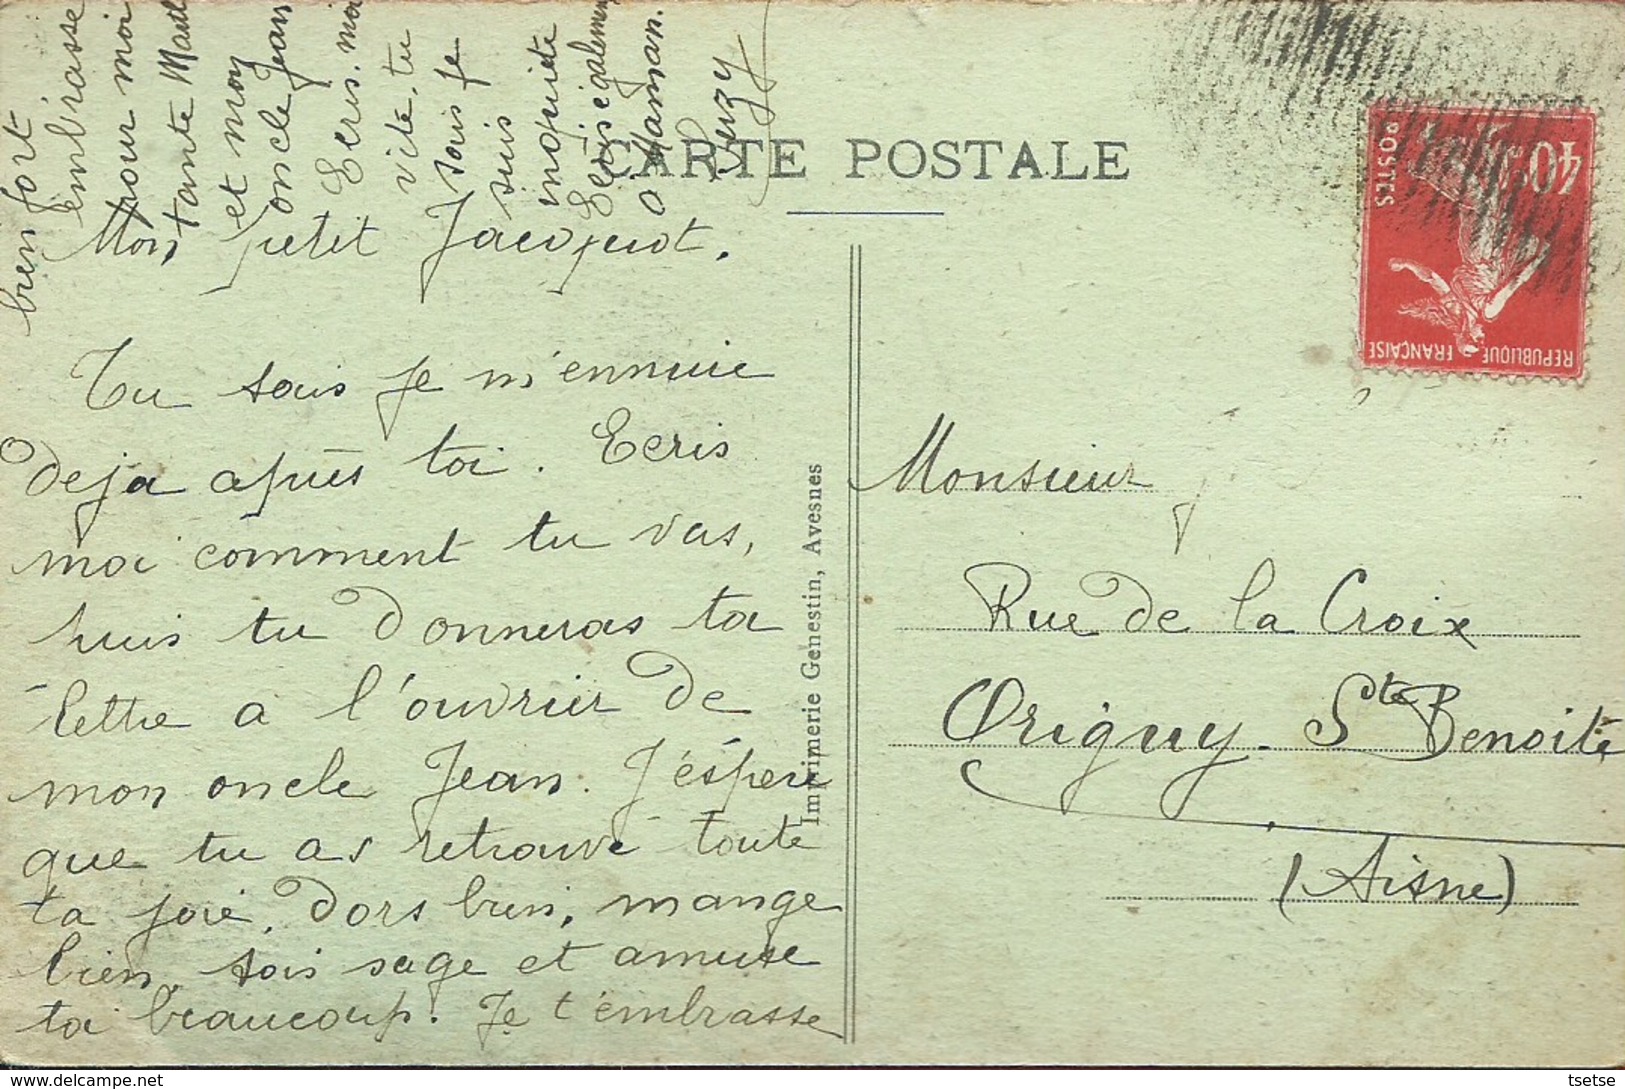 CARTE POSTALE
Mon petit Jacquot.
Tu sais je m'ennuie
deja après toi. Ecris
moi comment tu vas,
puis tu donneras ta
lettre a l'ouvrier de
mon oncle Jean. J'éspère
que tu as retrouvé toute
ta joie. Dors bien, mange
bien, sois sage et amuse
toi beaucoup. Je t'embrasse
bien fort
embrasse
pour moi
tante
et mon
oncle Jean
Ecris. moi
vite. tu
sais je
suis
inquiète
Ecris également
a Maman.
Suzy
Imprimerie Genestin, Avesnes
POSTES
40c
REPUBLIQUE FRANÇAISE
Monsieur
Rue de la Croix
Origny. Ste Benoite
(Aisne)
tsetse